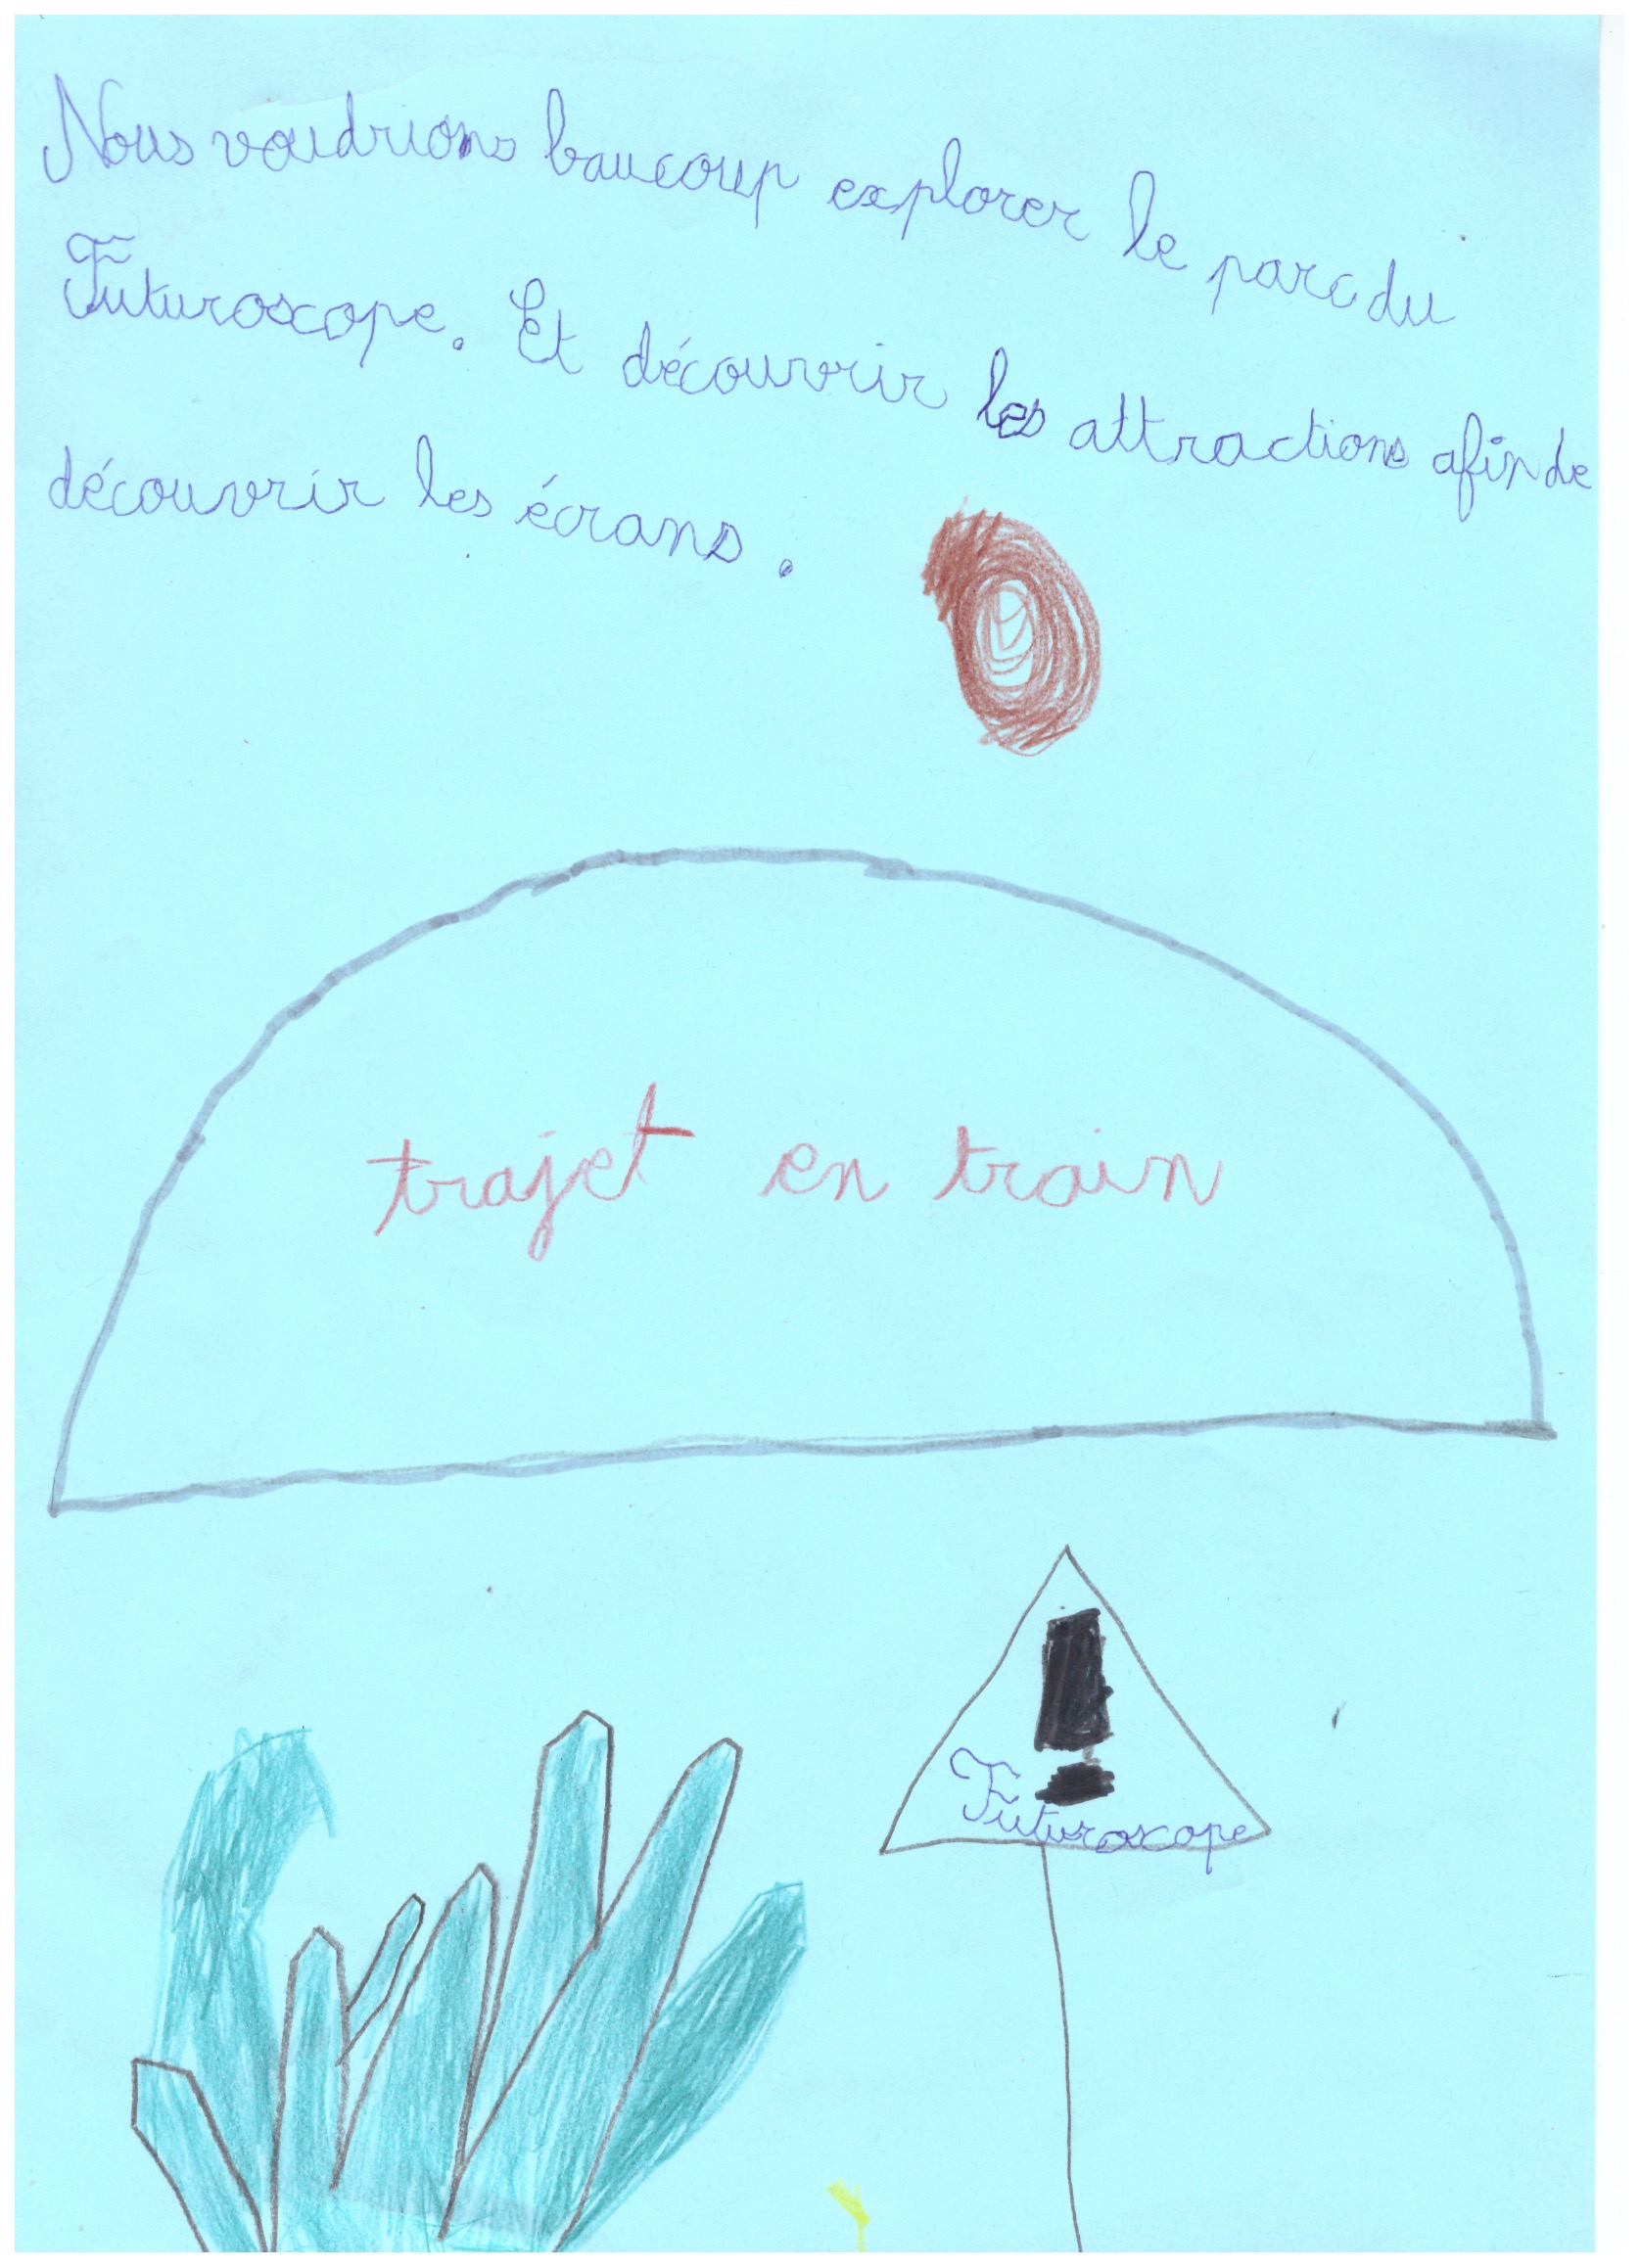 Nous voudrions baucoup explorer le parc du
Futuroscope. Et découvrir les attractions afin de
découvrir les écrans.
trajet en train
Futuroscope